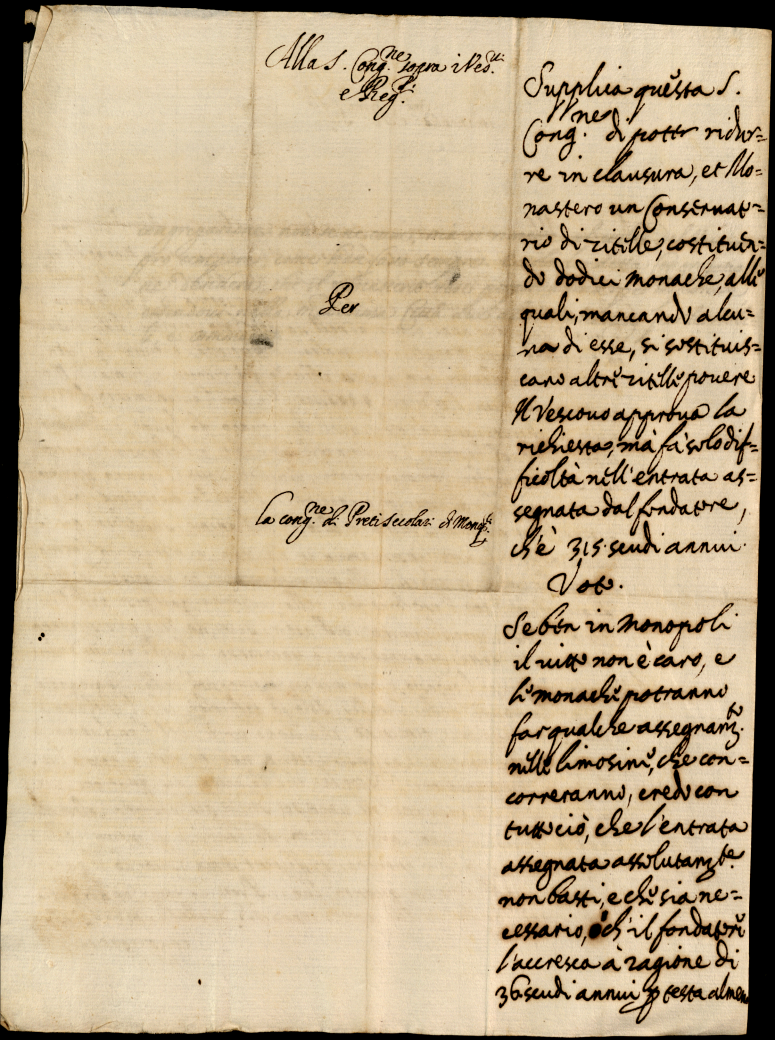 Alla S. Cong.ne sopra i Ves.vi
e Reg.ri
Per
la cong.ne di Preti secolari di Monop.li
Supplica questa S.
Cong.ne di potter ridur=
re in clausura, et Mo=
nastero un Conservato=
rio di zitelle, costituen=
do dodici monache, alle
quali, mancando alcu=
na di esse, si sostituis=
cano altre zitelle povere
Il Vescovo approva la
richiesta, mà fà solo dif=
ficoltà nell'entrata as=
segnata dal fondatore,
ch'è 315 scudi annui.
Voto.
Se ben in Monopoli
il vitto non è caro, e
le monache potranno
far qualche assegnam.to
nelle limosine, che con=
correranno, credo con
tutto ciò, che l'entrata
assegnata assolutam.te
non basti, e che sia ne=
cessario, ch'il fondatore
l'accresca à ragione di
36 scudi annui p testa almeno